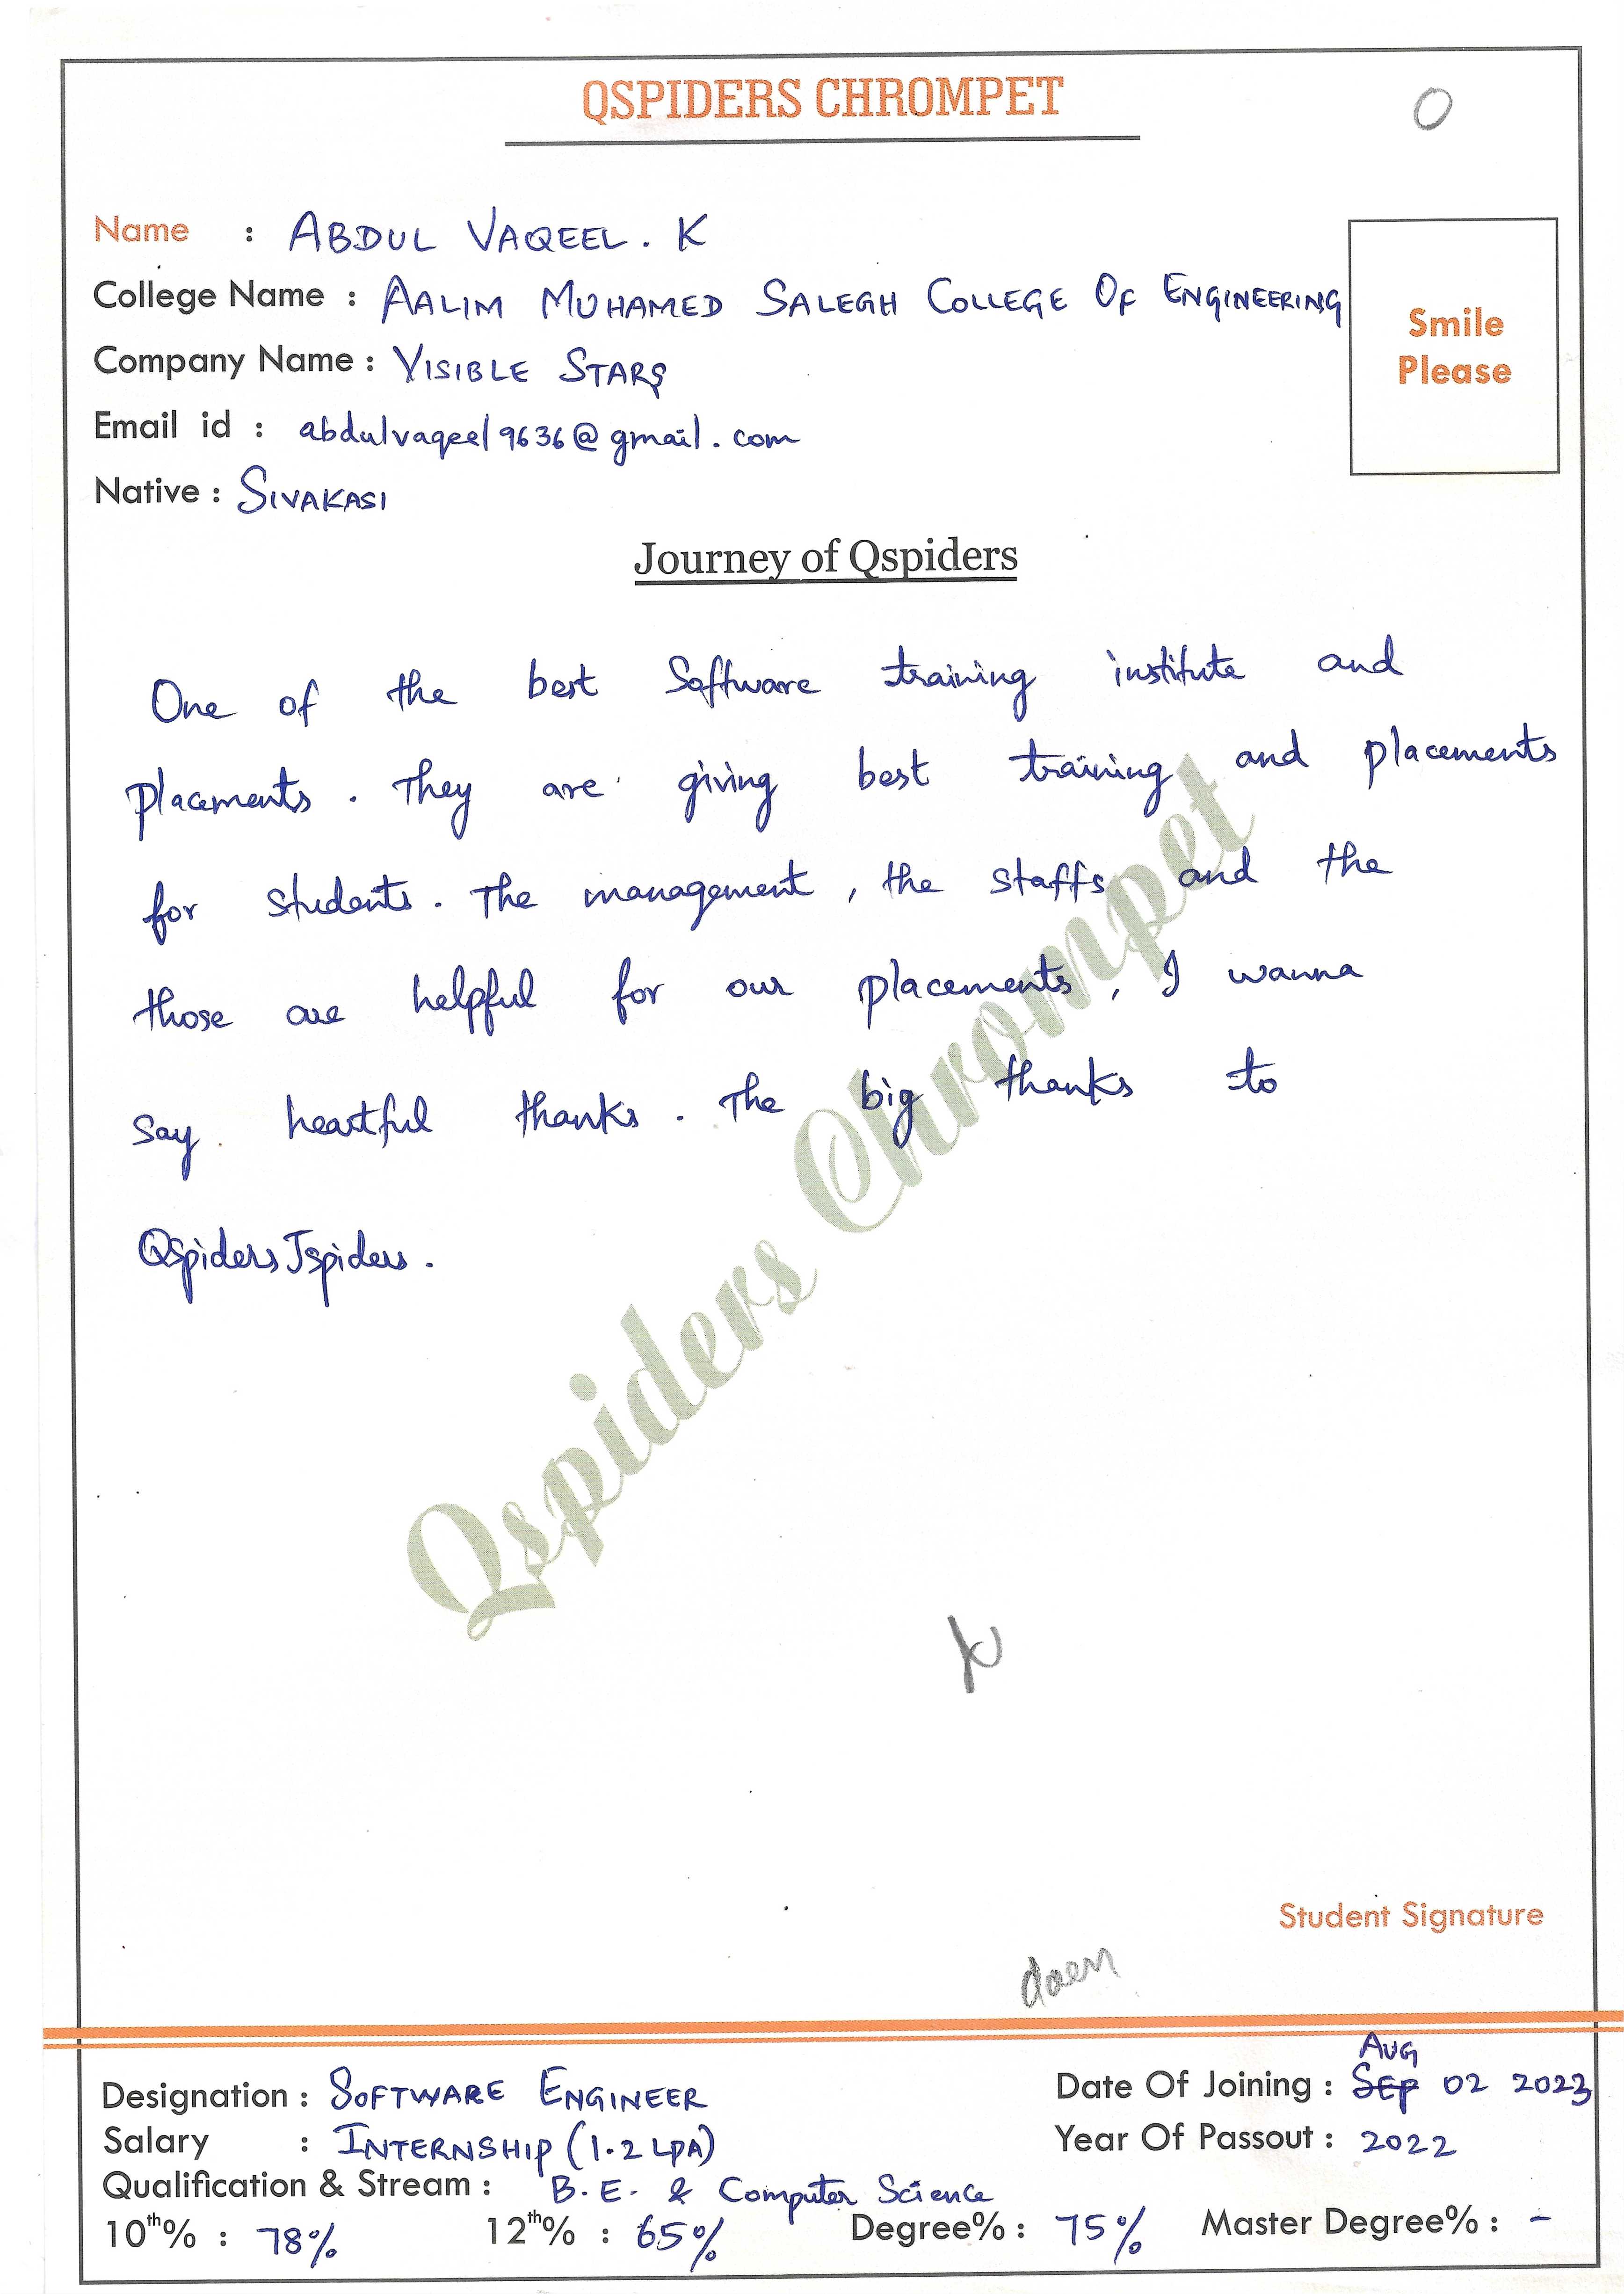 QSPIDERS CHROMPET
O
Name : ABDUL VAQEEL. K
College Name : AALIM MUHAMED SALEGH COLLEGE OF ENGINEERING
Smile
Please
Company Name : VISIBLE STARS
Email id : abdulvaqeel9636@gmail.com
Native : SIVAKASI
Journey of Qspiders
One of the best Software training institute and
placements. They are giving best training and placements
for students. The management, the staffs and the
those are helpful for our placements, I wanna
say heartful thanks. The big thanks to
QSpiders Jspiders.
Qspiders Chrompet
Student Signature
Designation : SOFTWARE ENGINEER
AUG
Date Of Joining : SEP 02 2023
Salary : INTERNSHIP (1.2 LPA)
Year Of Passout : 2022
Qualification & Stream : B.E. & Computer Science
10th% : 78% 12th% : 65% Degree% : 75% Master Degree% : -